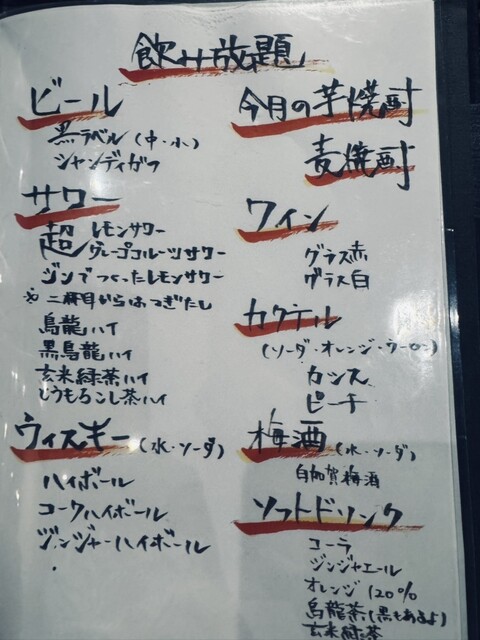 飲み放題
ビール
黒ラベル(中・小)
シャンディガフ
サワー
超 レモンサワー
グレープフルーツサワー
ジンでつくったレモンサワー
※二杯目からはつぎたし
烏龍ハイ
黒烏龍ハイ
玄米緑茶ハイ
とうもろこし茶ハイ
ウィスキー(水・ソーダ)
ハイボール
コークハイボール
ジンジャーハイボール
今月の芋焼酎
麦焼酎
ワイン
グラス赤
グラス白
カクテル
(ソーダ・オレンジ・ウーロン)
カシス
ピーチ
梅酒(水・ソーダ)
白加賀梅酒
ソフトドリンク
コーラ
ジンジャエール
オレンジ120%
烏龍茶(黒もあるよ)
玄米緑茶